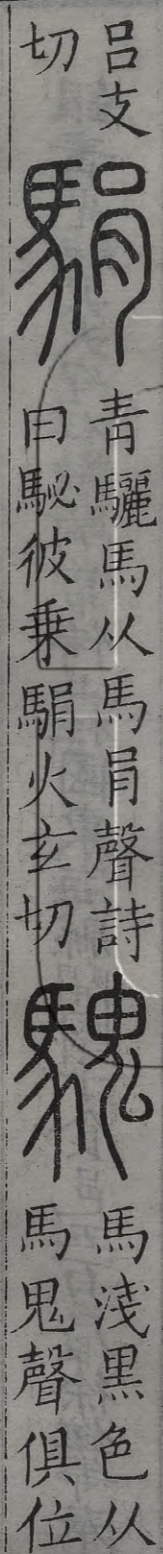 吕支
切
駽
青驪馬从馬肙聲詩
曰駜彼乗駽火玄切
騩
馬淺黒色从
馬鬼聲俱位